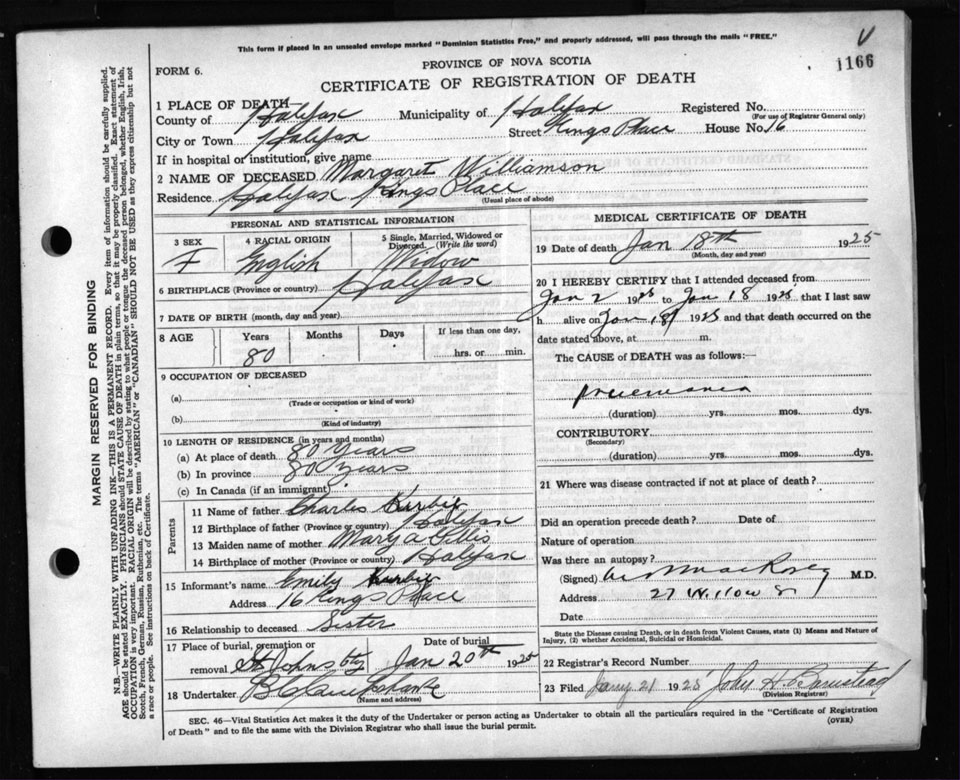 This form if placed in an unsealed envelope marked "Dominion Statistics Free," and properly addressed, will pass through the mails "FREE."
V
1166
FORM 6.
PROVINCE OF NOVA SCOTIA
CERTIFICATE OF REGISTRATION OF DEATH
1 PLACE OF DEATH—
County of Halifax Municipality of Halifax Registered No.
(For use of Registrar General only)
City or Town Halifax Street Kings Place House No. 16
If in hospital or institution, give name
2 NAME OF DECEASED Margaret Williamson
Residence Halifax Kings Place
(Usual place of abode)
PERSONAL AND STATISTICAL INFORMATION
3 SEX 4 RACIAL ORIGIN 5 Single, Married, Widowed or Divorced. (Write the word)
F English Widow
6 BIRTHPLACE (Province or country) Halifax
7 DATE OF BIRTH (month, day and year)
8 AGE Years Months Days If less than one day,
80 hrs. or min.
9 OCCUPATION OF DECEASED
(a)
(Trade or occupation or kind of work)
(b)
(Kind of industry)
10 LENGTH OF RESIDENCE (in years and months)
(a) At place of death 80 Years
(b) In province 80 Years
(c) In Canada (if an immigrant)
Parents
11 Name of father Charles
12 Birthplace of father (Province or country) Halifax
13 Maiden name of mother Mary a
14 Birthplace of mother (Province or country) Halifax
15 Informant's name Emily
Address 16 Kings Place
16 Relationship to deceased Sister
17 Place of burial, cremation or removal St Johns Date of burial Jan 20th 1925
18 Undertaker
(Name and address)
MEDICAL CERTIFICATE OF DEATH
19 Date of death Jan 18th 1925
(Month, day and year)
20 I HEREBY CERTIFY that I attended deceased from
Jan 2 1925 to Jan 18 1925 that I last saw
h alive on Jan 18 1925 and that death occurred on the
date stated above, at m.
The CAUSE of DEATH was as follows:—
pneumonia
(duration) yrs. mos. dys.
CONTRIBUTORY
(Secondary)
(duration) yrs. mos. dys.
21 Where was disease contracted if not at place of death?
Did an operation precede death? Date of
Nature of operation
Was there an autopsy?
(Signed) M.D.
Address 27 Willow St
Date
State the Disease causing Death, or in death from Violent Causes, state (1) Means and Nature of
Injury, (2) whether Accidental, Suicidal or Homicidal.
22 Registrar's Record Number
23 Filed Jany 21 1925 John H. Barnstead
(Division Registrar)
SEC. 46—Vital Statistics Act makes it the duty of the Undertaker or person acting as Undertaker to obtain all the particulars required in the "Certificate of Registration
of Death" and to file the same with the Division Registrar who shall issue the burial permit.
(OVER)
MARGIN RESERVED FOR BINDING
N.B.—WRITE PLAINLY WITH UNFADING INK—THIS IS A PERMANENT RECORD. Every item of information should be carefully supplied.
AGE should be stated EXACTLY. PHYSICIANS should STATE CAUSE OF DEATH in plain terms, so that it may be properly classified. Exact statement of
OCCUPATION is very important. RACIAL ORIGIN will be described by stating to what people or tongue the deceased person belonged, whether English, Irish,
Scotch, French, German, Russian, Ruthenian, etc. The terms "AMERICAN" or "CANADIAN" SHOULD NOT BE USED as they express citizenship but not
a race or people. See instructions on back of Certificate.